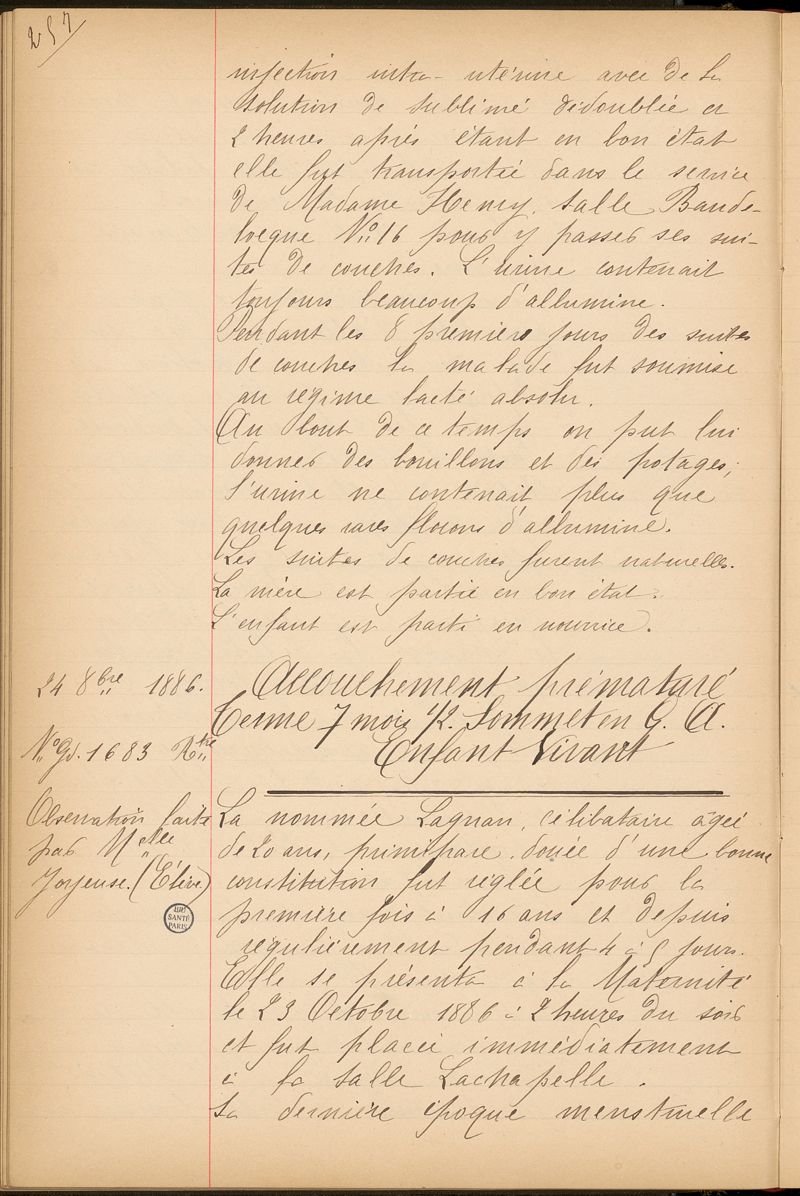 257
injection intra-utérine avec de la
solution de sublimé dédoublée et
2 heures après étant en bon état
elle fut transportée dans le service
de Madame Henry, salle Baude-
locque N° 16 pour y passer ses sui-
tes de couches. L'urine contenait
toujours beaucoup d'allumine.
Pendant les 8 premiers jours des suites
de couches la malade fut soumise
au régime lacté absolu.
Au bout de ce temps on put lui
donner des bouillons et des potages;
l'urine ne contenait plus que
quelques rares flocons d'allumine.
Les suites de couches furent naturelles.
La mère est partie en bon état.
L'enfant est parti en nourrice.
24 8bre 1886.
Accouchement prématuré
Terme 7 mois 1/2. Sommet en G. A.
Enfant Vivant
N° Gd. 1683 Rtre
Observation faite
par Melle
Joyeuse. (Élève)
BIU
SANTÉ
PARIS
La nommée Lagnan, célibataire agée
de 20 ans, primipare, douée d'une bonne
constitution fut réglée pour la
première fois à 16 ans et depuis
régulièrement pendant 4 à 5 jours.
Elle se présenta à la Maternité
le 23 Octobre 1886 à 2 heures du soir
et fut placée immédiatement
à la salle Lachapelle.
Sa dernière époque menstruelle